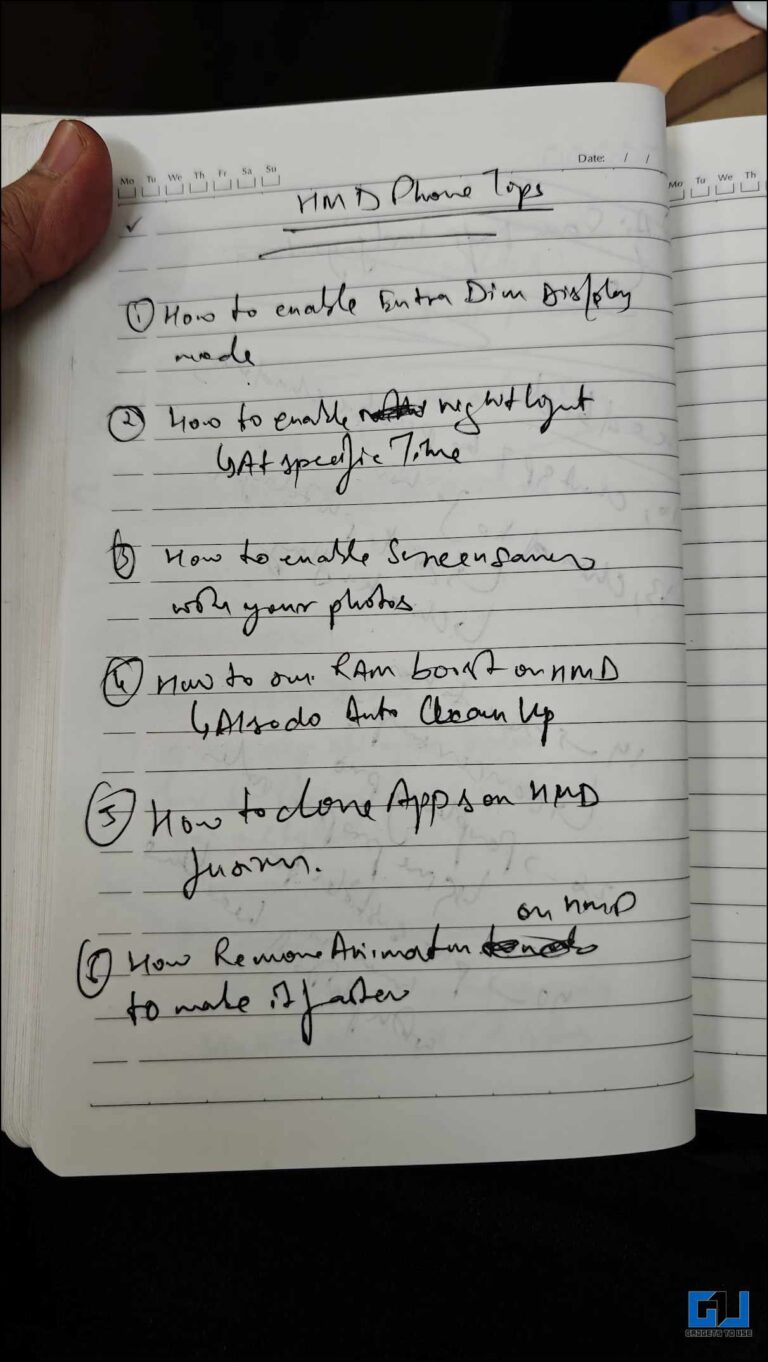 Mo Tu We Th Fr Sa Su
Date: / /
Mo Tu We Th
HMD Phone Tips
① How to enable Extra Dim Display
mode
② How to enable night light
↳ At specific Time
③ How to enable Screensaver
with your photos
④ How to RAM boost on HMD
↳ Also do Auto Clean Up
⑤ How to clone Apps on HMD
fusion.
on HMD
⑥ How Remove Animation
to make it faster
GADGETS TO USE